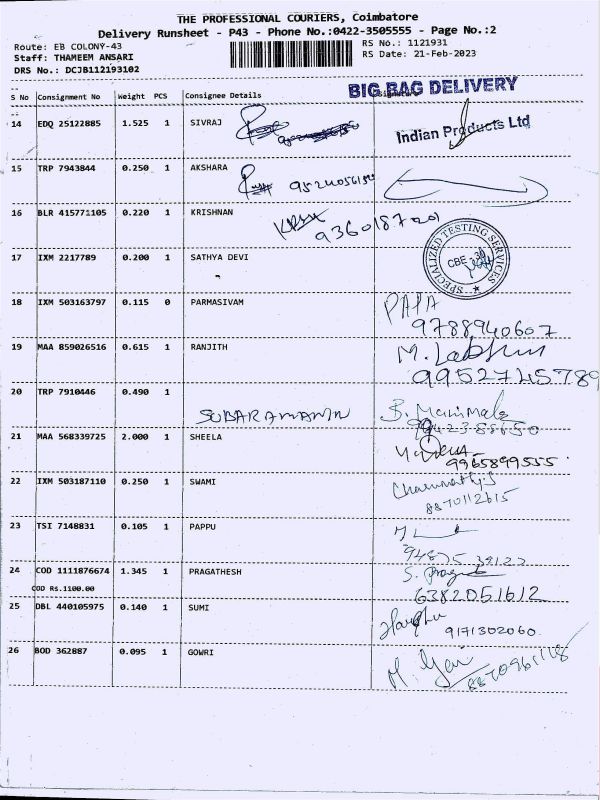 THE PROFESSIONAL COURIERS, Coimbatore
Delivery Runsheet - P43 - Phone No.:0422-3505555 - Page No.:2
Route: EB COLONY-43
RS No.: 1121931
Staff: THAMEEM ANSARI
RS Date: 21-Feb-2023
DRS No.: DCJB112193102
BIG BAG DELIVERY
S No Consignment No Weight PCS Consignee Details
14 EDQ 25122885 1.525 1 SIVRAJ
Indian Products Ltd
15 TRP 7943844 0.250 1 AKSHARA
16 BLR 415771105 0.220 1 KRISHNAN
17 IXM 2217789 0.200 1 SATHYA DEVI
SPECIALIZED TESTING SERVICES
CBE
18 IXM 503163797 0.115 0 PARMASIVAM
PAPA
9788940607
19 MAA 859026516 0.615 1 RANJITH
9952745789
20 TRP 7910446 0.490 1
21 MAA 568339725 2.000 1 SHEELA
9965899555
22 IXM 503187110 0.250 1 SWAMI
8870112615
23 TSI 7148831 0.105 1 PAPPU
24 COD 1111876674 1.345 1 PRAGATHESH
COD Rs.1100.00
6382051612
25 DBL 440105975 0.140 1 SUMI
9171302060
26 BOD 362887 0.095 1 GOWRI